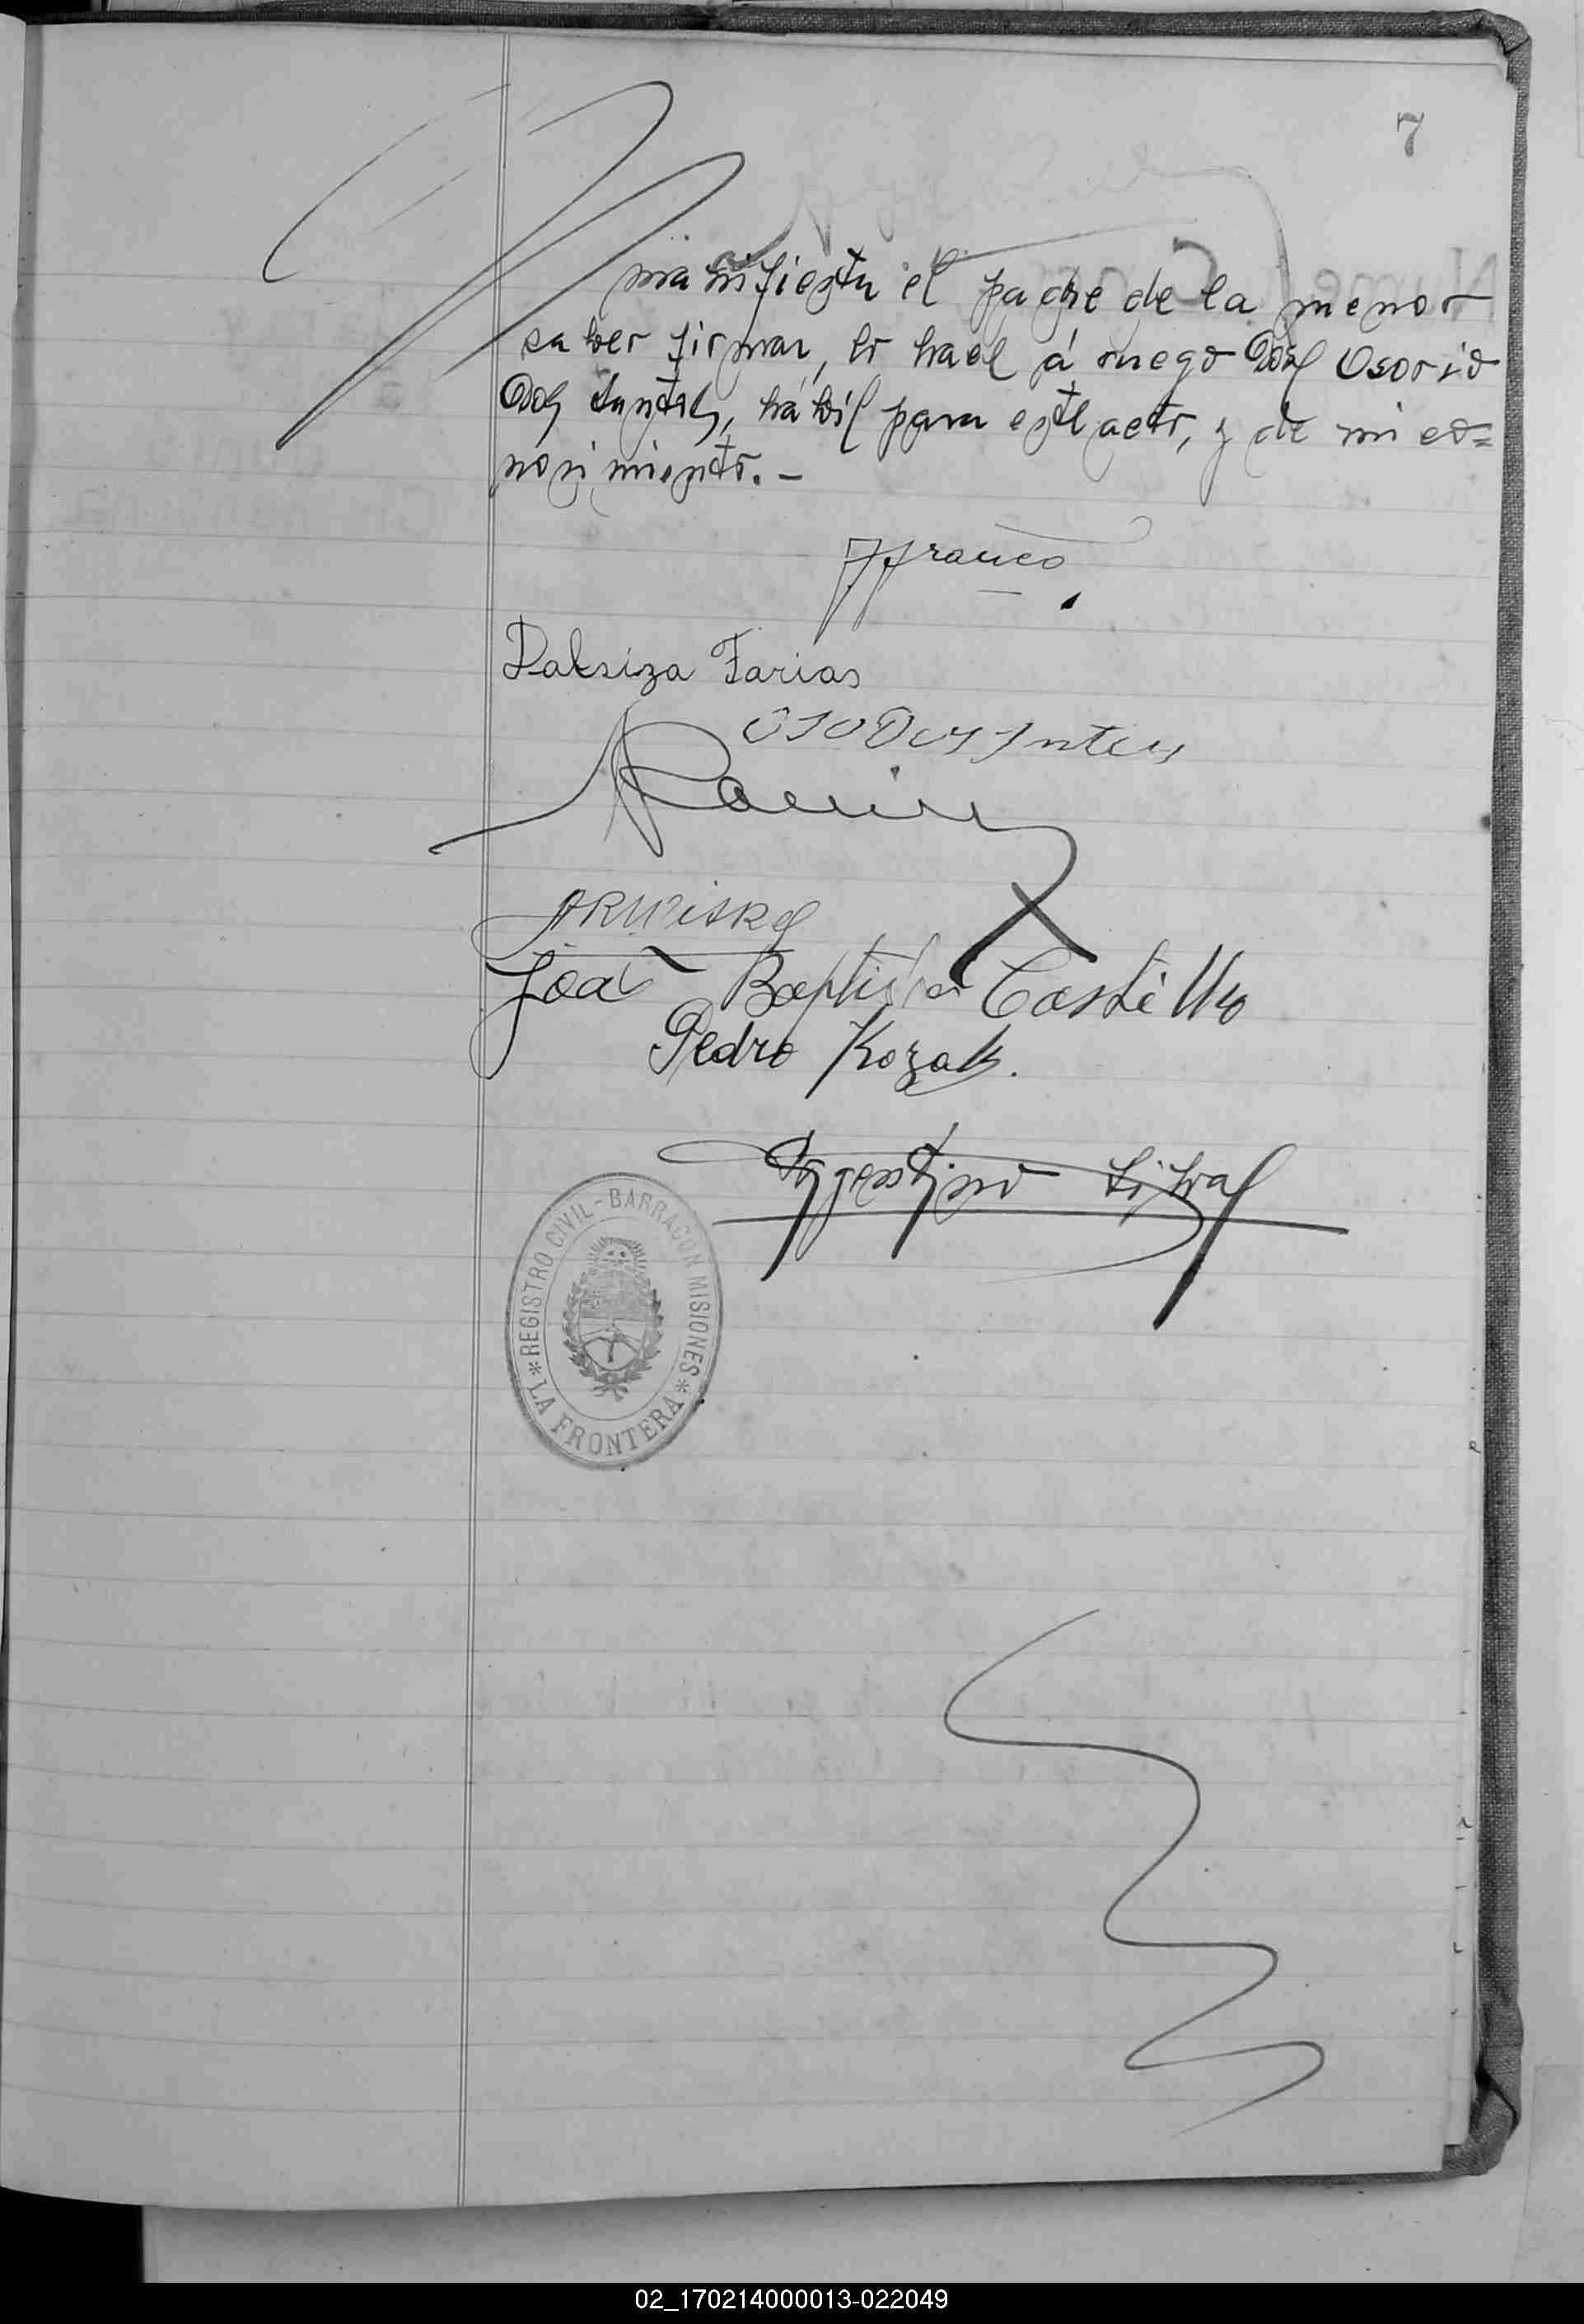 7
manifiesta el padre de la menor
saber firmar, lo hace á ruego Don Osorio
Dos Santos, hábil para este acto, y de mi co=
nocimiento. -
JFranco
Dalsiza Farias
OSO Dos Santos
Joao Baptista Castillo
Pedro Kozak.
Argentino
REGISTRO CIVIL - BARRACON MISIONES
* LA FRONTERA *
02_170214000013-022049